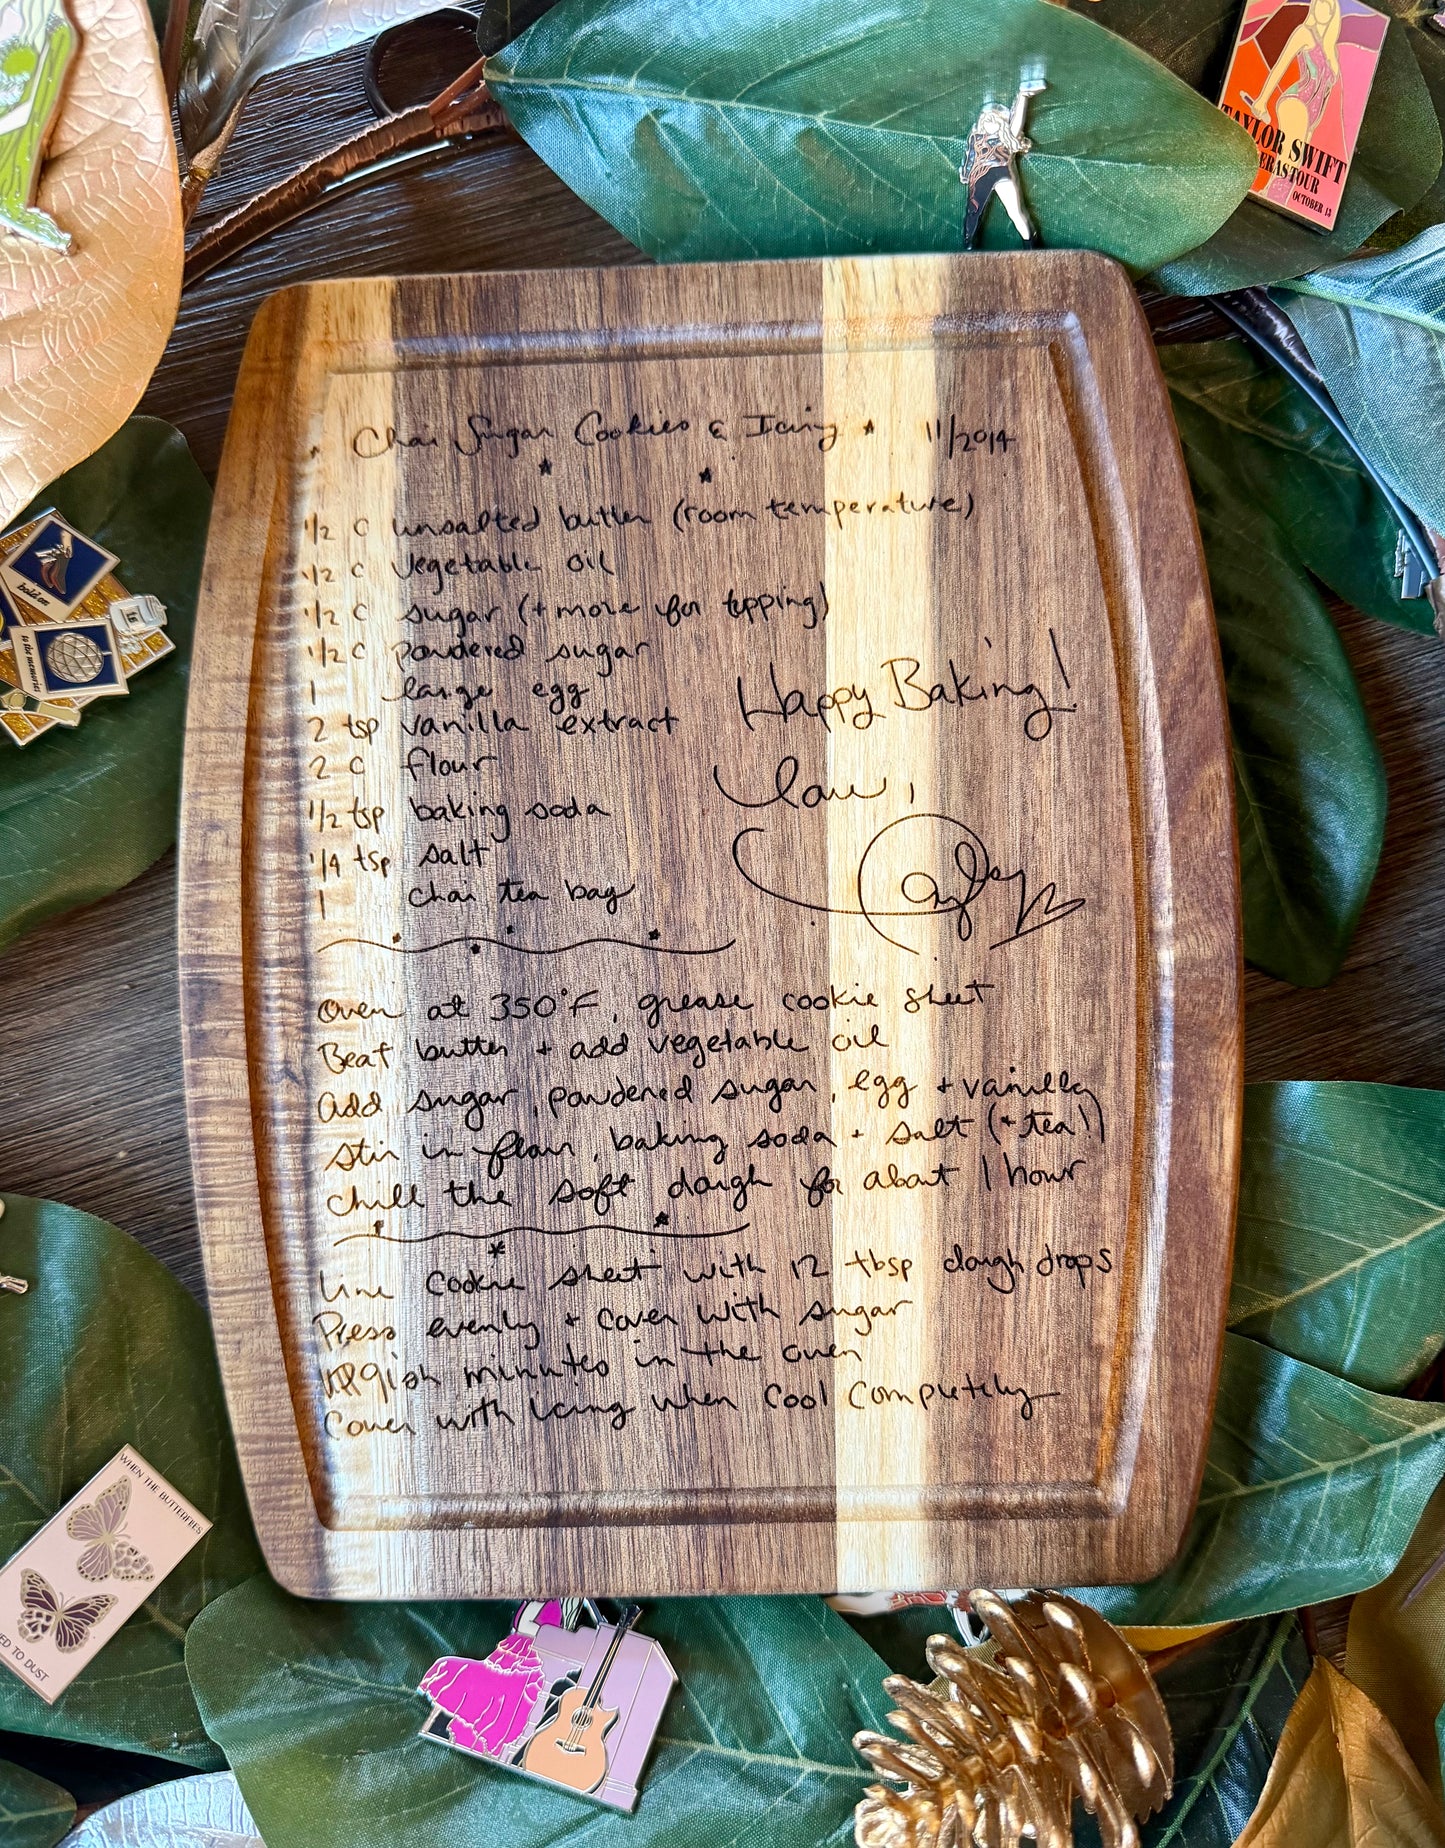 TAYLOR SWIFT
ERAS TOUR
OCTOBER 13
Chai Sugar Cookies & Icing 11/2014
1/2 c unsalted butter (room temperature)
1/2 c vegetable oil
1/2 c sugar (+ more for topping)
1/2 c powdered sugar
1 large egg
2 tsp vanilla extract
2 c flour
1/2 tsp baking soda
1/4 tsp salt
1 chai tea bag
Happy Baking!
Love,
Taylor
hold on
to the memories
Oven at 350°F, grease cookie sheet
Beat butter + add vegetable oil
Add sugar, powdered sugar, egg + vanilla
stir in flour, baking soda + salt (+ tea!)
chill the soft dough for about 1 hour
Line cookie sheet with 12 tbsp dough drops
Press evenly + cover with sugar
minutes in the oven
Cover with icing when cool completely
WHEN THE BUTTERFLIES
TO DUST